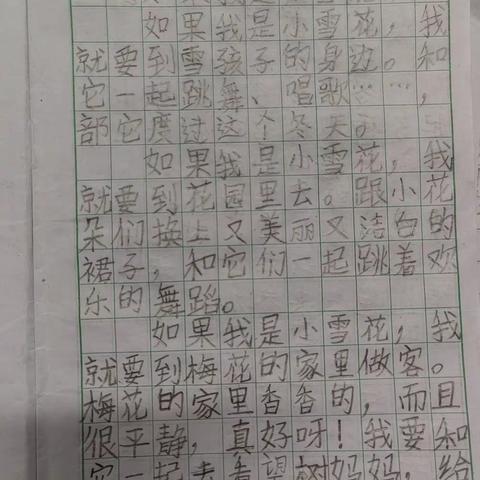 如果我是小雪花，我
就要到雪孩子的身边。和
它一起跳舞、唱歌……，
部它度过这个冬天。
如果我是小雪花，我
就要到花园里去。跟小花
朵们换上又美丽又洁白的
裙子，和它们一起跳着欢
乐的舞蹈。
如果我是小雪花，我
就要到梅花的家里做客。
梅花的家里香香的，而且
很平静，真好呀！我要和
它一起去看望树妈妈，给